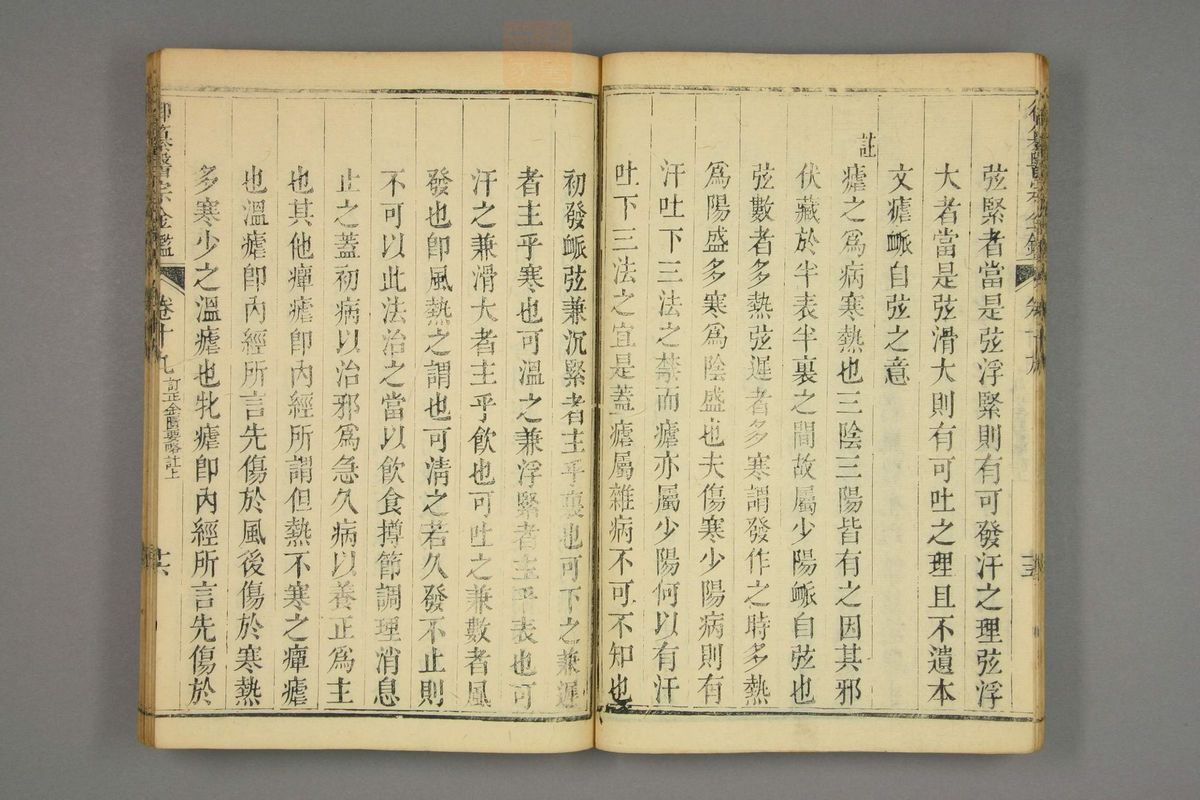 弦緊者當是弦浮緊則有可發汗之理弦浮
大者當是弦滑大則有可吐之理且不遺本
文瘧脈自弦之意
註
瘧之為病寒熱也三陰三陽皆有之因其邪
伏藏於半表半裏之間故屬少陽脈自弦也
弦數者多熱弦遲者多寒謂發作之時多熱
為陽盛多寒為陰盛也夫傷寒少陽病則有
汗吐下三法之禁而瘧亦屬少陽何以有汗
吐下三法之宜是蓋瘧屬雜病不可不知也
初發脈弦兼沉緊者主乎裏也可下之兼遲
者主乎寒也可溫之兼浮緊者主乎表也可
汗之兼滑大者主乎飲也可吐之兼數者風
發也卽風熱之謂也可清之若久發不止則
不可以此法治之當以飲食撙節調理消息
止之蓋初病以治邪為急久病以養正為主
也其他癉瘧卽內經所謂但熱不寒之癉瘧
也溫瘧卽內經所言先傷於風後傷於寒熱
多寒少之溫瘧也牝瘧卽內經所言先傷於
御纂醫宗金鑑 卷十九 訂正金匱要略註上